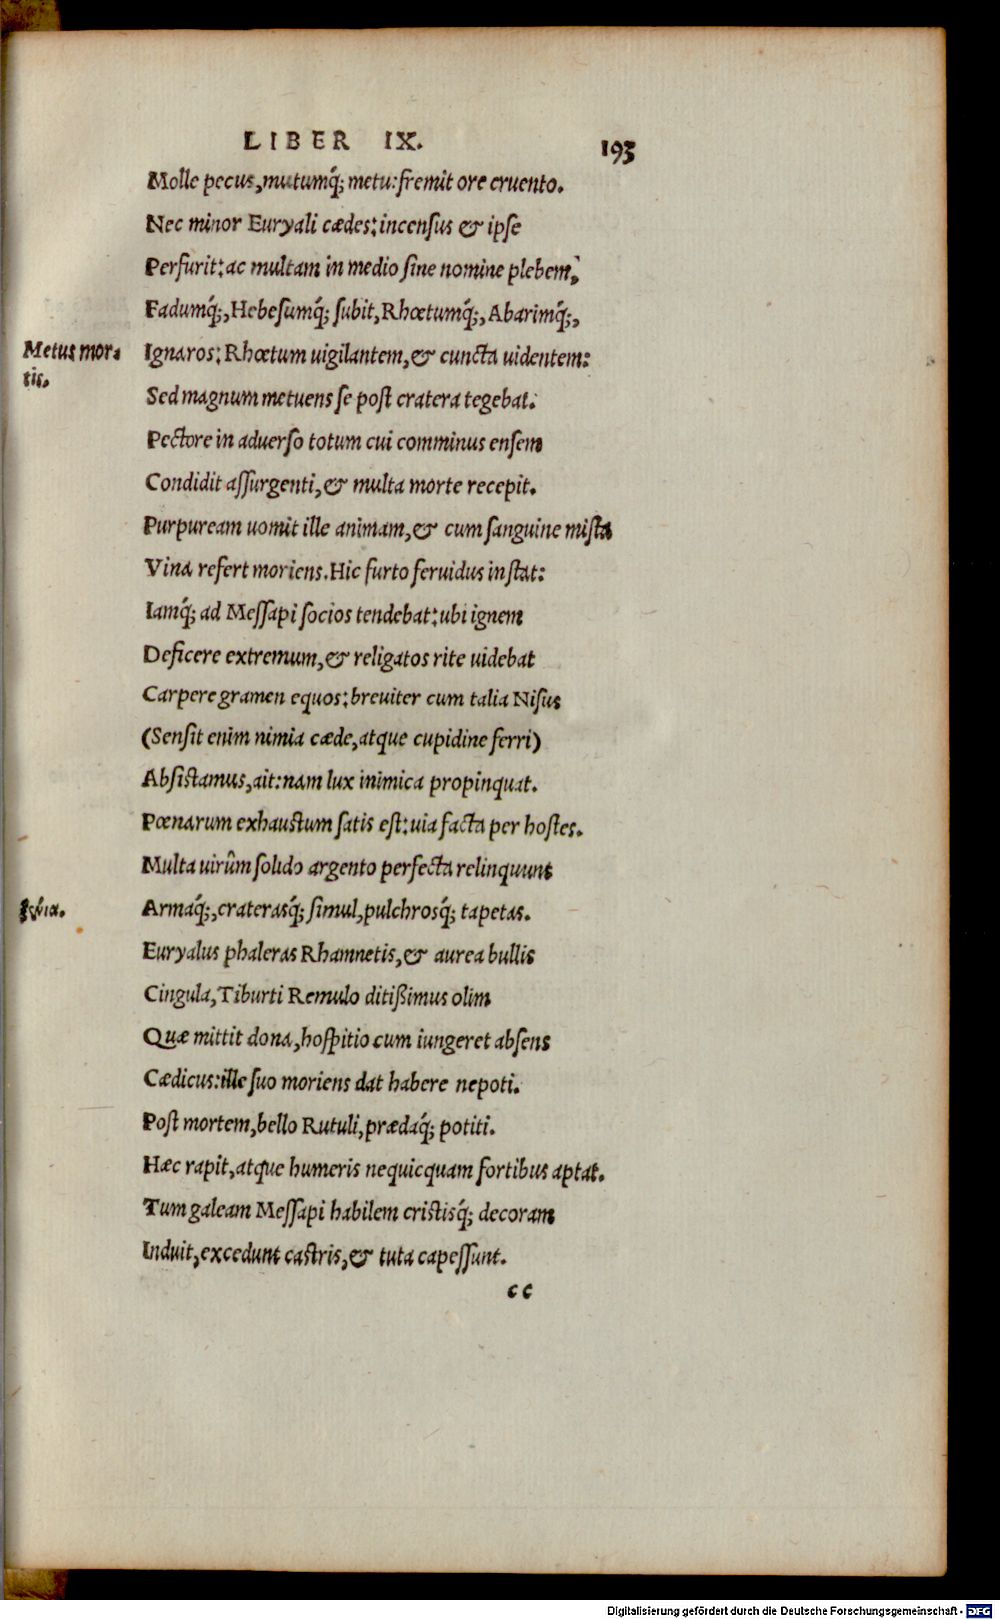 LIBER IX. 193
Molle pecus, mutumq́; metu: fremit ore cruento.
Nec minor Euryali cædes: incensus & ipse
Perfurit: ac multam in medio sine nomine plebem,
Fadumq́;, Hebesumq́; subit, Rhœtumq́;, Abarimq́;,
Metus mortis.
Ignaros: Rhœtum uigilantem, & cuncta uidentem:
Sed magnum metuens se post cratera tegebat.
Pectore in aduerso totum cui comminus ensem
Condidit assurgenti, & multa morte recepit.
Purpuream uomit ille animam, & cum sanguine mista
Vina refert moriens. Hic furto feruidus instat:
Iamq́; ad Messapi socios tendebat: ubi ignem
Deficere extremum, & religatos rite uidebat
Carpere gramen equos: breuiter cum talia Nisus
(Sensit enim nimia cæde, atque cupidine ferri)
Absistamus, ait: nam lux inimica propinquat.
Pœnarum exhaustum satis est: uia facta per hostes.
Multa uirûm solido argento perfecta relinquunt
Armaq́;, craterasq́; simul, pulchrosq́; tapetas.
Euryalus phaleras Rhamnetis, & aurea bullis
Cingula, Tiburti Remulo ditißimus olim
Quæ mittit dona, hospitio cum iungeret absens
Cædicus: ille suo moriens dat habere nepoti.
Post mortem, bello Rutuli, prædaq́; potiti.
Hæc rapit, atque humeris nequicquam fortibus aptat.
Tum galeam Messapi habilem cristisq́; decoram
Induit, excedunt castris, & tuta capessunt.
cc
Digitalisierung gefördert durch die Deutsche Forschungsgemeinschaft - DFG